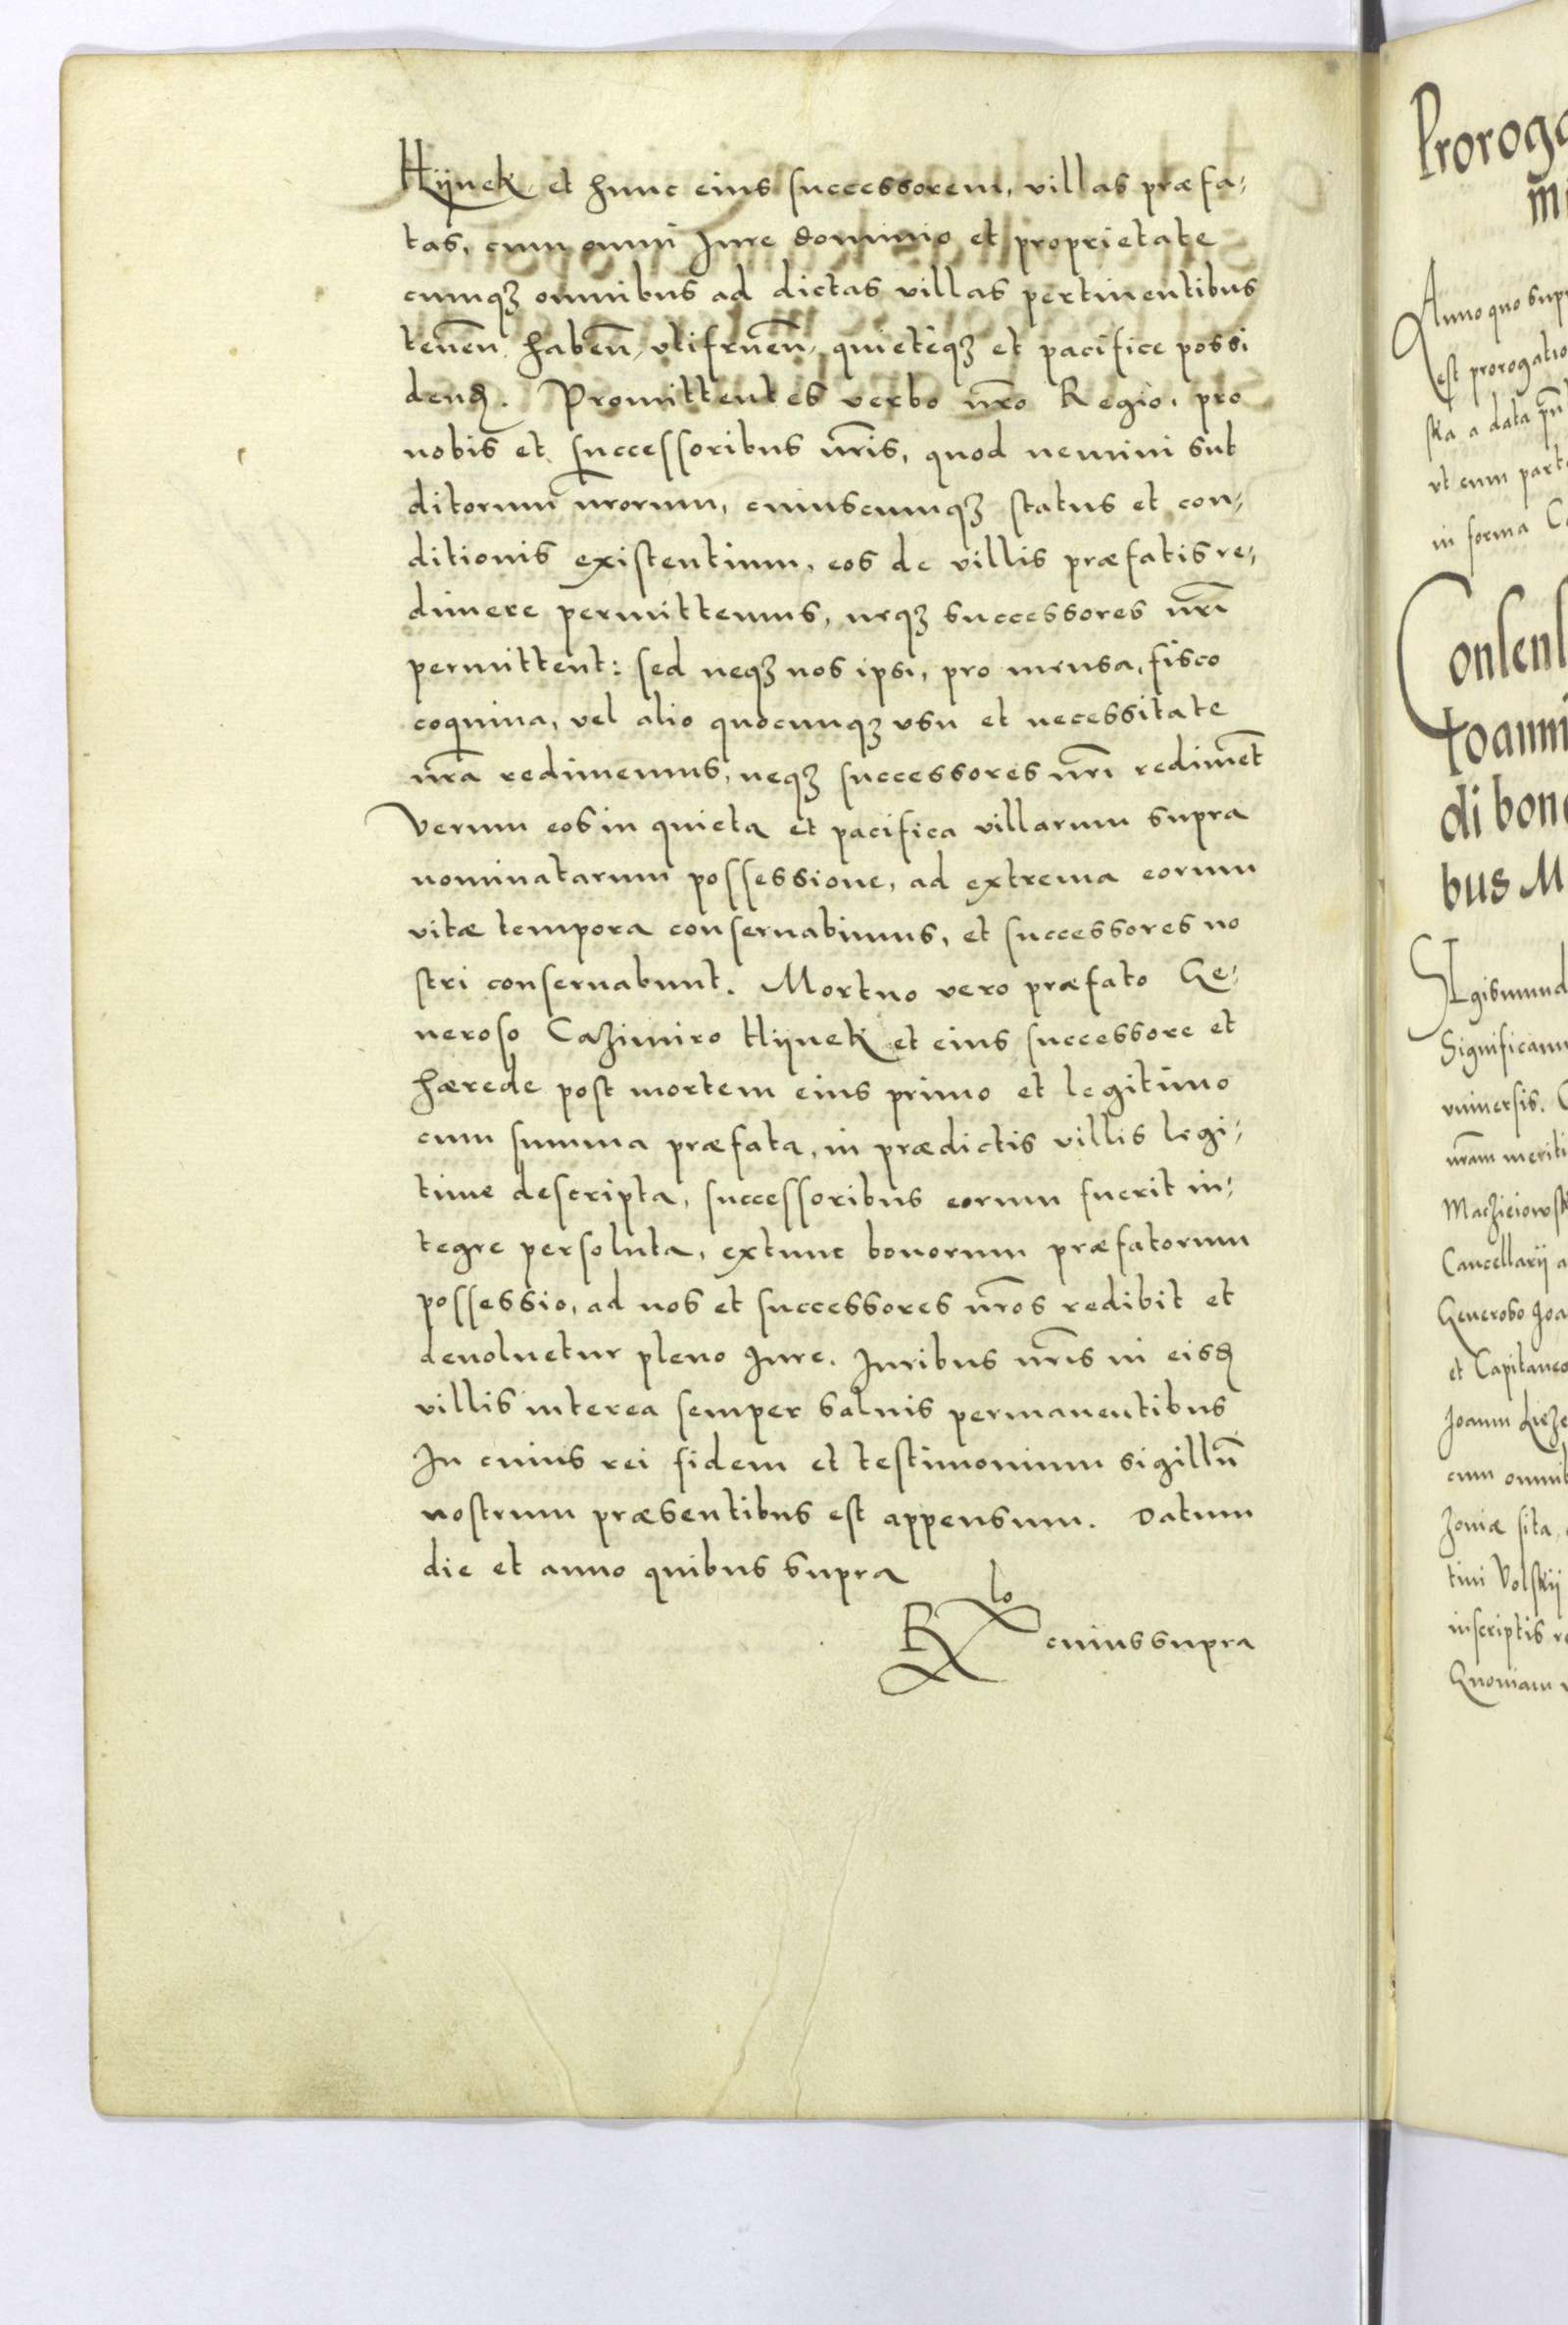 Hÿnek, et hunc eius successorem, villas præfa-
tas, cum omni Jure dominio et proprietate
cumqꝫ omnibus ad dictas villas pertinentibus
teneñ. habeñ, vtifrueñ, quieteqꝫ et pacifice possi
denđ. Promittentes verbo nr̃o Regio, pro
nobis et successoribus nr̃is, quod nemini sub
ditorum nr̃orum, cuiuscumqꝫ status et con-
ditionis existentium, eos de villis præfatis re-
dimere permittemus, neqꝫ successores nr̃i
permittent: sed neqꝫ nos ipsi, pro mensa, fisco
coquina, vel alio quocumqꝫ vsu et necessitate
nr̃a redimemus, neqꝫ successores nr̃i redimẽt
Verum eos in quieta et pacifica villarum supra
nominatarum possessione, ad extrema eorum
vitæ tempora conseruabimus, et successores no
stri conseruabunt. Mortuo vero præfato Ge-
neroso Cazimiro Hÿnek et eius successore et
hærede post mortem eius primo et legitimo
cum summa præfata, in prædictis villis legi-
time descripta, successoribus eorum fuerit in-
tegre persoluta, extunc bonorum præfatorum
possessio, ad nos et successores nr̃os redibit et
deuoluetur pleno Jure. Juribus nr̃is in eisđ
villis interea semper saluis permanentibus
In cuius rei fidem et testimonium sigillũ
nostrum præsentibus est appensum. Datum
die et anno quibus supra
Rlo cuius supra
Proroga
Anno quo supr
est prorogatio
ska a data pñ
vt cum part
in forma C
Consens
Joanni
di bon
bus M
SIgismund
Significam
vniuersis.
nr̃am meriti
Macziciowsk
Cancellarÿ a
Generoso Joa
et Capitaneo
Joann
cum omnib
zoniæ sita,
tini Volskÿ
inscriptis re
Quoniam